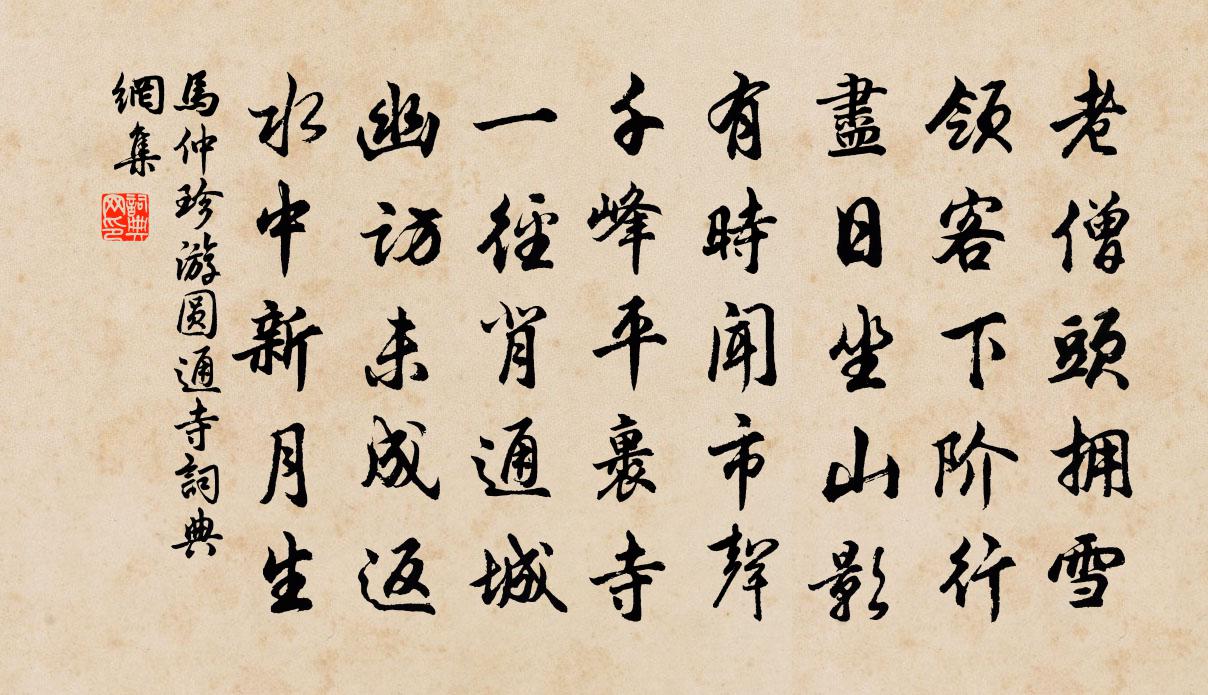 老僧頭拥雪
領客下阶行
盡日坐山影
有時聞市聲
千峰平裹寺
一徑背通城
幽訪未成返
水中新月生
馬仲珍游圆通寺詞典
網集
詞典
网印